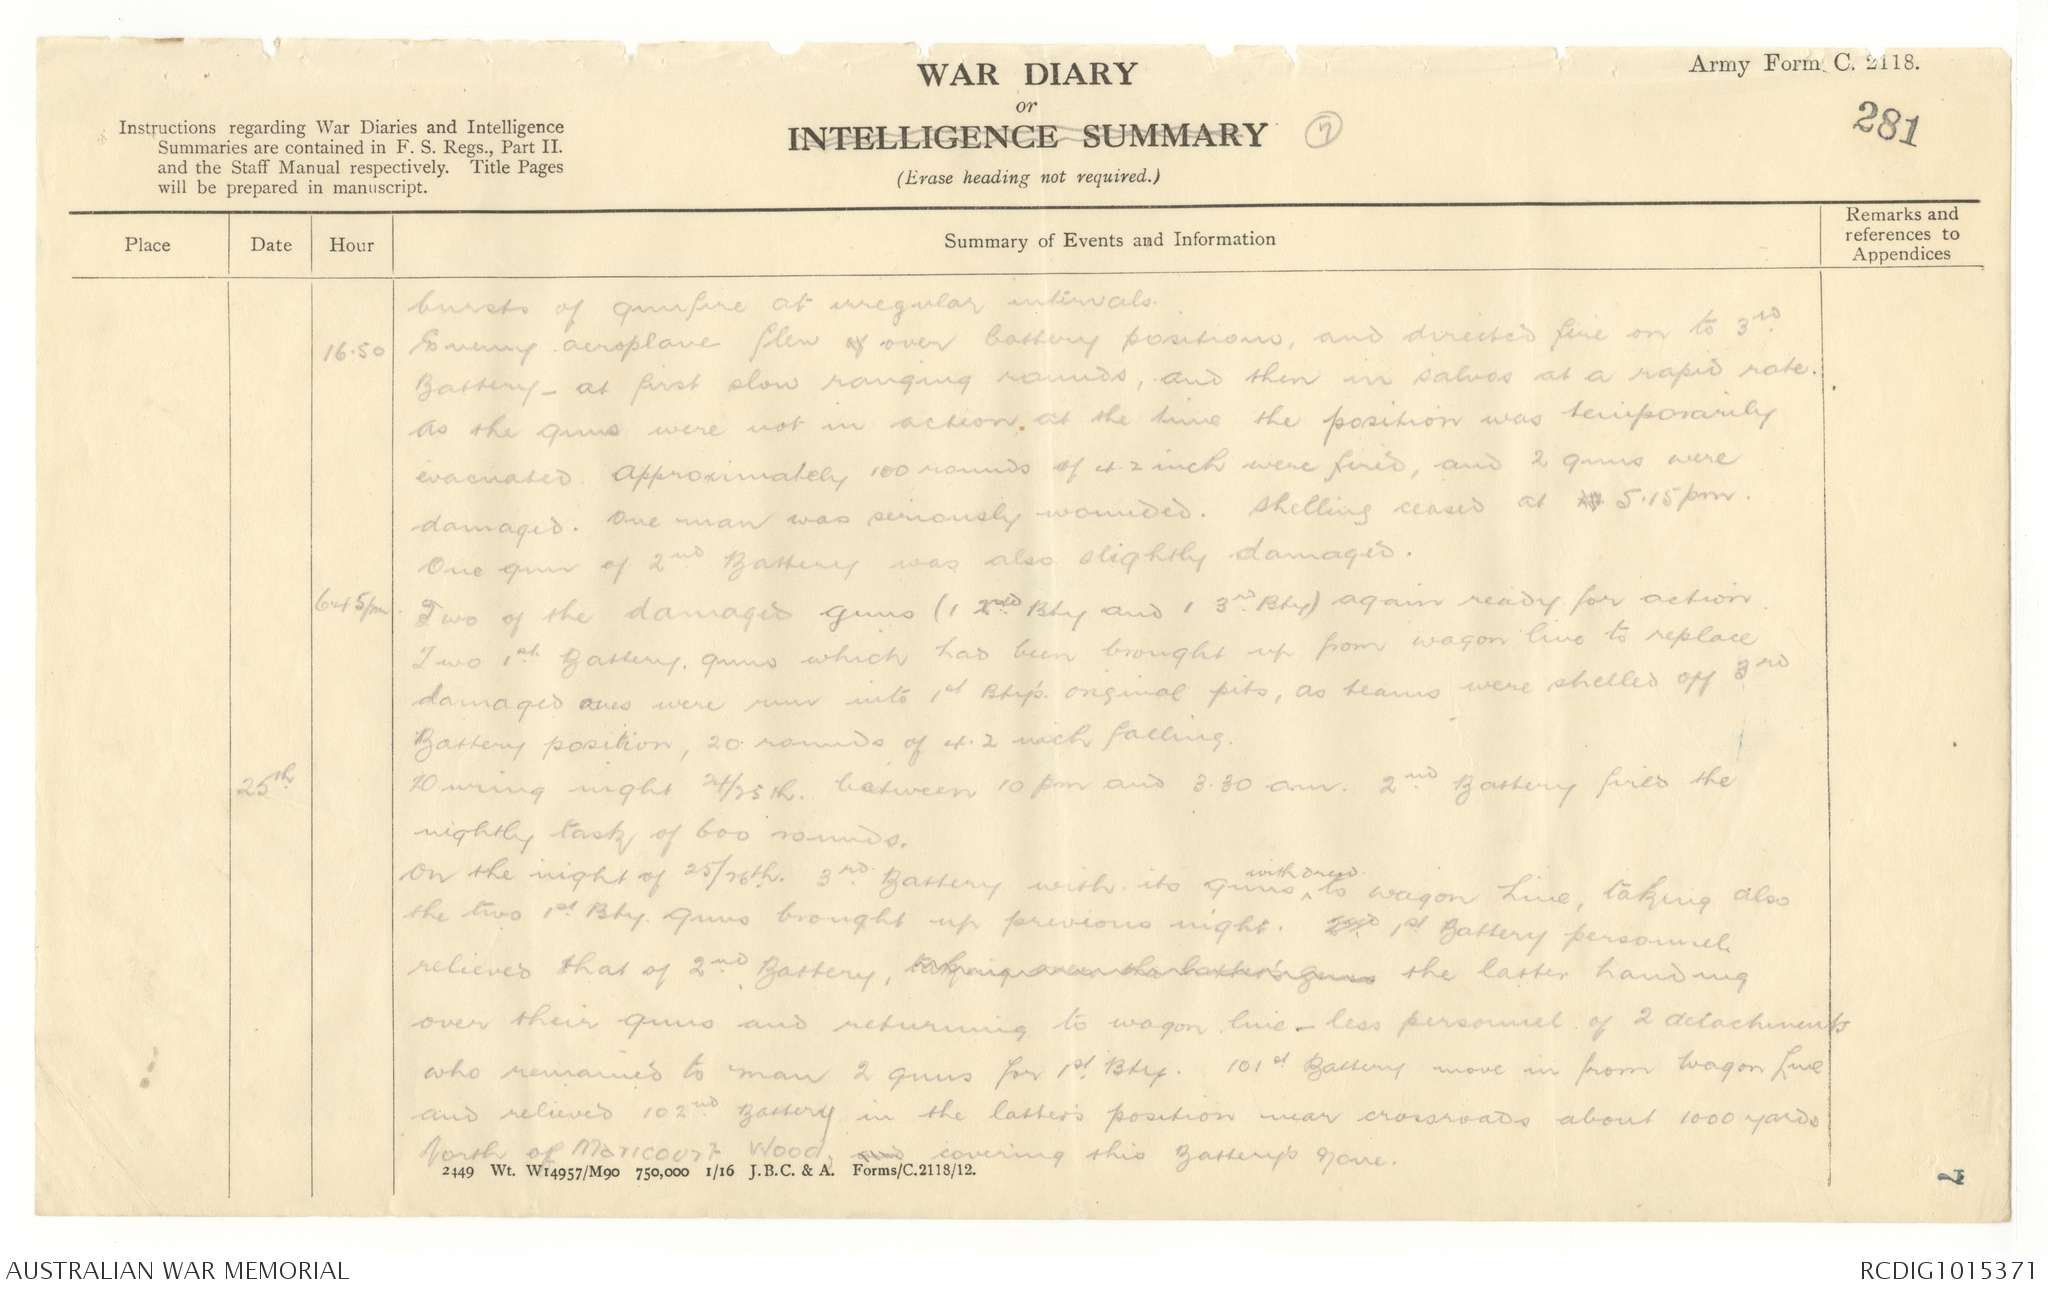 WAR DIARY
or
INTELLIGENCE SUMMARY
(Erase heading not required.)
Army Form C. 2118.
281
7
Instructions regarding War Diaries and Intelligence
Summaries are contained in F. S. Regs., Part II.
and the Staff Manual respectively. Title Pages
will be prepared in manuscript.
Place
Date
Hour
Summary of Events and Information
Remarks and
references to
Appendices
bursts of gunfire at irregular intervals.
16.50 Enemy aeroplane flew over battery positions, and directed fire on to 3rd
Battery - at first slow ranging rounds, and then in salvos at a rapid rate.
As the guns were not in action at the time the position was temporarily
evacuated. Approximately 100 rounds of 4.2 inch were fired, and 2 guns were
damaged. One man was seriously wounded. Shelling ceased at 5.15 pm.
One gun of 2nd Battery was also slightly damaged.
6.45 pm. Two of the damaged guns (1 2nd Bty and 1 3rd Bty) again ready for action.
Two 1st Battery guns which had been brought up from wagon line to replace
damaged ones were run into 1st Bty's original pits, as teams were shelled off 3rd
Battery position, 20 rounds of 4.2 inch falling.
25th During night 24/25th. between 10 pm and 3.30 am. 2nd Battery fired the
nightly task of 600 rounds.
On the night of 25/26th. 3rd Battery with its guns withdrew to wagon Line, taking also
the two 1st Bty. Guns brought up previous night. 1st Battery personnel
relieved that of 2nd Battery, taking over the latter's guns the latter handing
over their guns and returning to wagon line - less personnel of 2 detachments
who remained to man 2 guns for 1st Bty. 101st Battery move in from Wagon Line
and relieved 102nd Battery in the latter's position near crossroads about 1000 yards
North of Maricourt Wood, and covering this Battery's Zone.
2449 Wt. W14957/M90 750,000 1/16 J.B.C. & A. Forms/C.2118/12.
AUSTRALIAN WAR MEMORIAL
RCDIG1015371